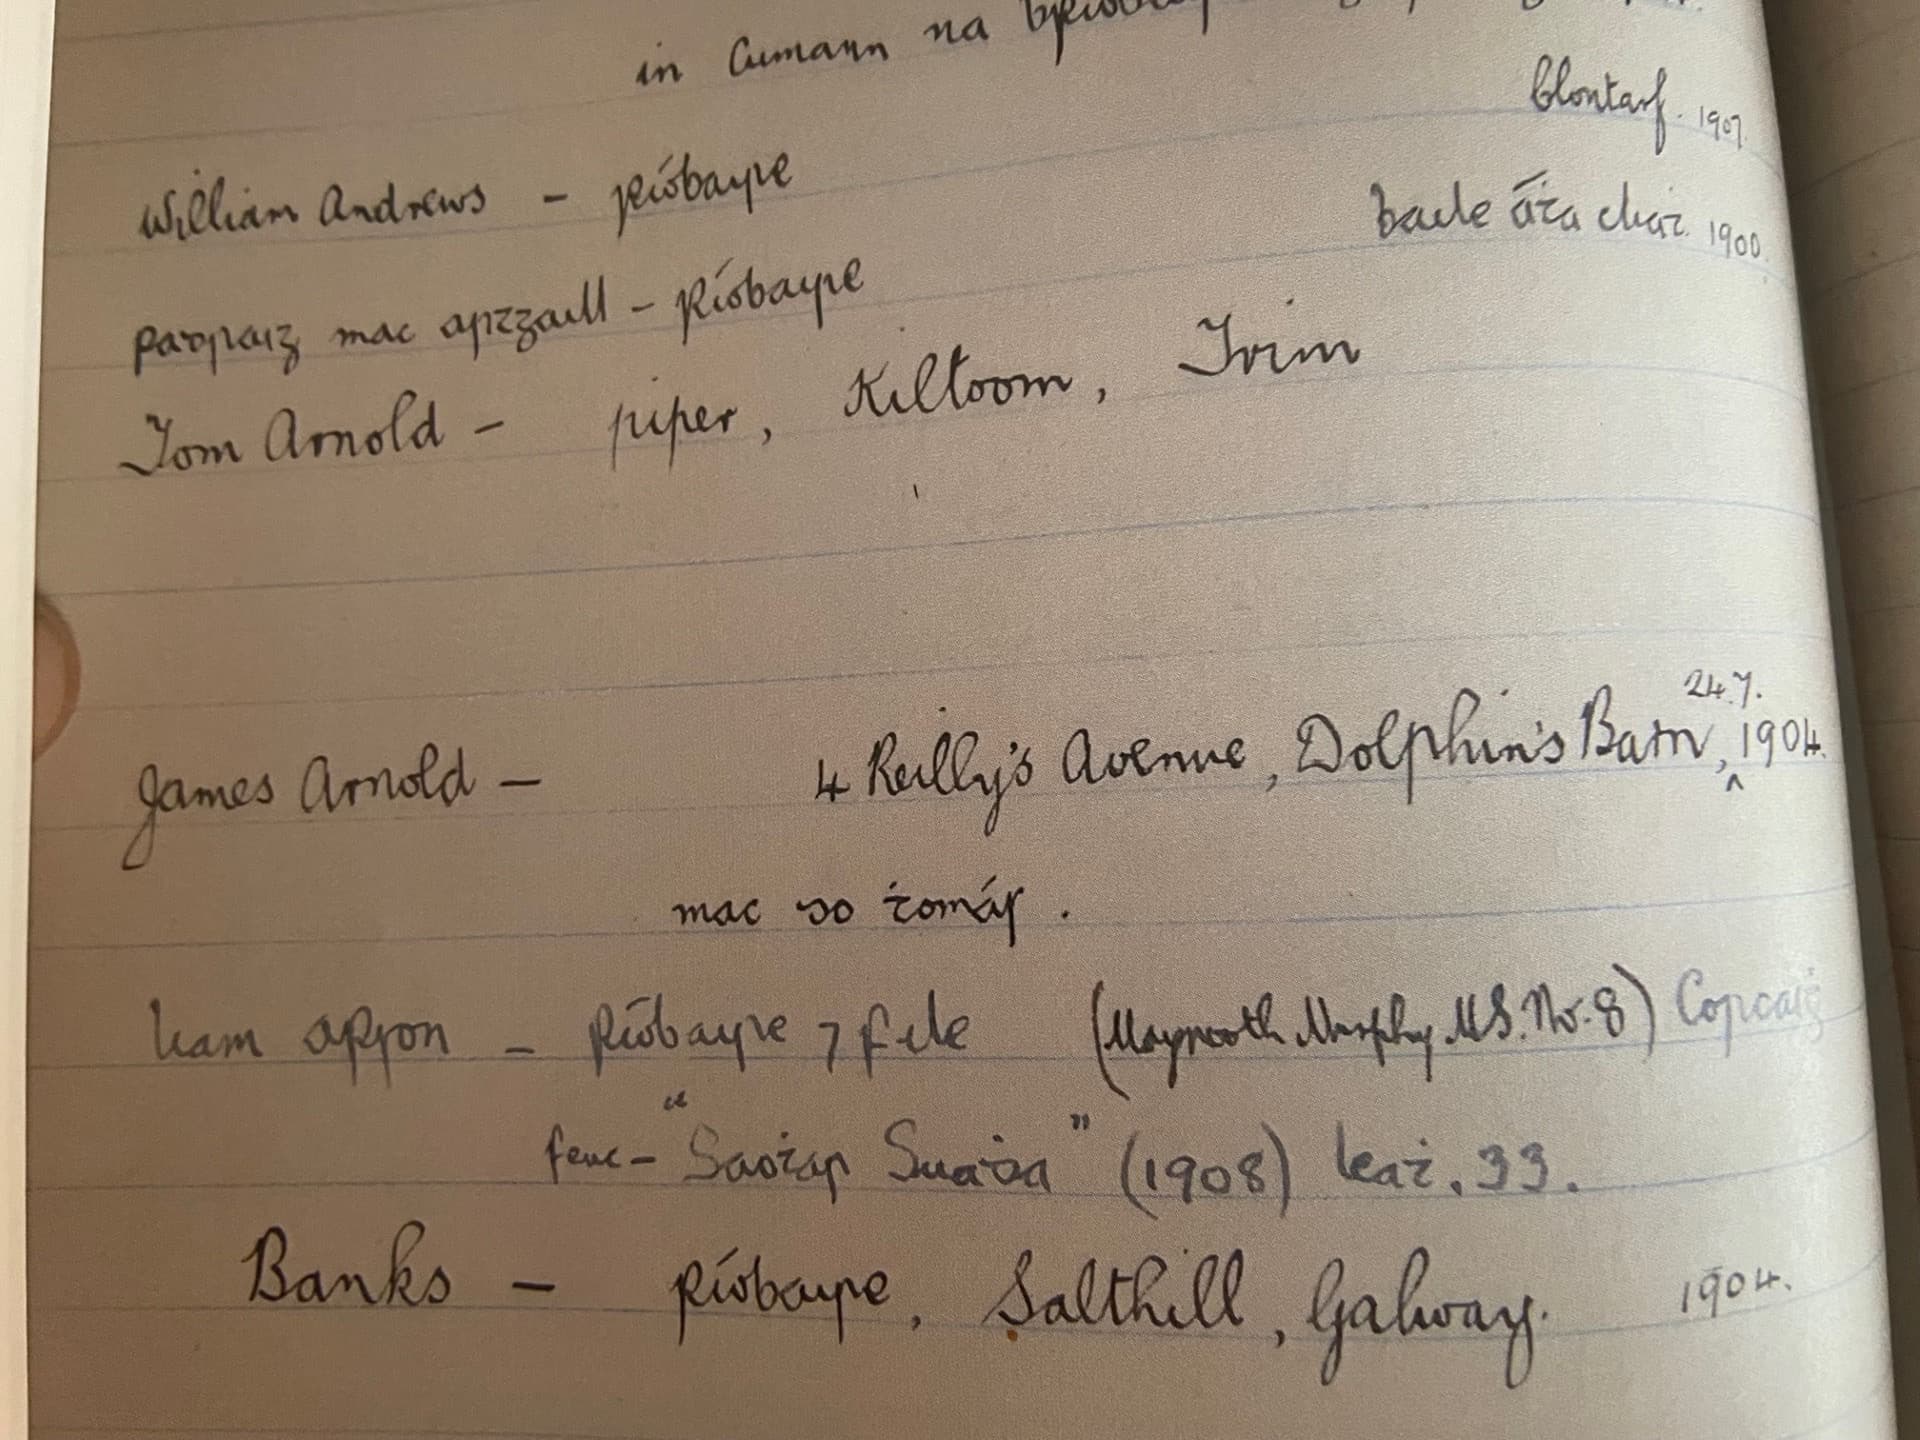 in Cumann na bPíobairí
Clontarf. 1907.
William Andrews – píobaire
Baile Áṫa Cliaṫ. 1900.
Pádraig Mac Artgaill – píobaire
Tom Arnold – piper, Kiltoom, Trim
24.7.
James Arnold – 4 Reilly's Avenue, Dolphin's Barn, ^ 1904.
mac do Ṫomás.
Liam Arson – píobaire ⁊ file (Maynooth Murphy MS. No. 8) Corcaiġ
féuc – "Saoṫar Suaḋa" (1908) leaṫ. 33.
Banks – píobaire, Salthill, Galway. 1904.